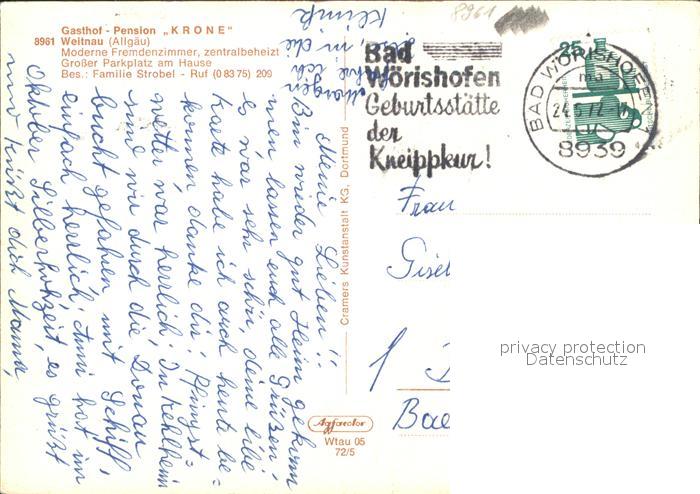 Gasthof - Pension „KRONE"
8961 Weitnau (Allgäu)
Moderne Fremdenzimmer, zentralbeheizt
Großer Parkplatz am Hause
Bes.: Familie Strobel - Ruf (0 83 75) 209
8961
Bad
Wörishofen
Geburtsstätte
der
Kneippkur!
25
BAD WÖRISHOFEN
8939
Meine Lieben!!
Bin wieder gut Heim gekom
men lassen euch alle Grüßen!
es war sehr schön, deine liebe
Karte habe ich auch heute be=
kommen danke dir! Pfingst=
wetter war herrlich! In Kehlheim
sind wir durch die Donau
bucht gefahren, mit Schiff,
einfach herrlich! Anni hat im
Oktober Silberhohzeit, es grüßt
und küßt dich Mama,
fahre in die
Klinik
Cramers Kunstanstalt KG, Dortmund
Agfacolor
Wtau 05
72/5
Frau
Gisel
1
Bae
privacy protection
Datenschutz